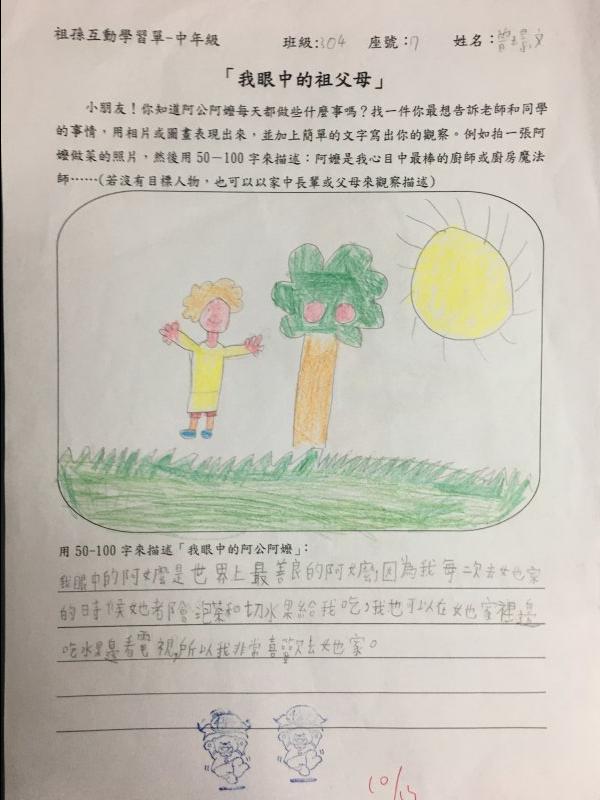 祖孫互動學習單-中年級 班級:304 座號:17 姓名:
「我眼中的祖父母」
小朋友！你知道阿公阿嬤每天都做些什麼事嗎？找一件你最想告訴老師和同學
的事情，用相片或圖畫表現出來，並加上簡單的文字寫出你的觀察。例如拍一張阿
嬤做菜的照片，然後用50－100字來描述：阿嬤是我心目中最棒的廚師或廚房魔法
師……(若沒有目標人物，也可以以家中長輩或父母來觀察描述)
用50-100字來描述「我眼中的阿公阿嬤」：
我眼中的阿嬤是世界上最善良的阿嬤,因為我每一次去她家
的時候她都會泡茶和切水果給我吃,我也可以在她家裡邊
吃水果邊看電視,所以我非常喜歡去她家。